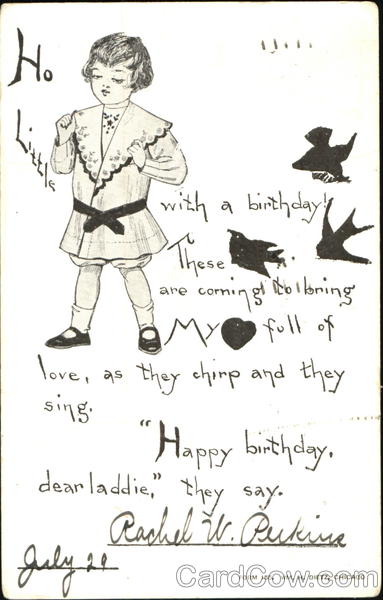 Ho
Little
with a birthday!
These
are coming to bring
My full of
love, as they chirp and they
sing.
"Happy birthday,
dear laddie," they say.
Rachel W. Perkins
July 29
CardCow.com